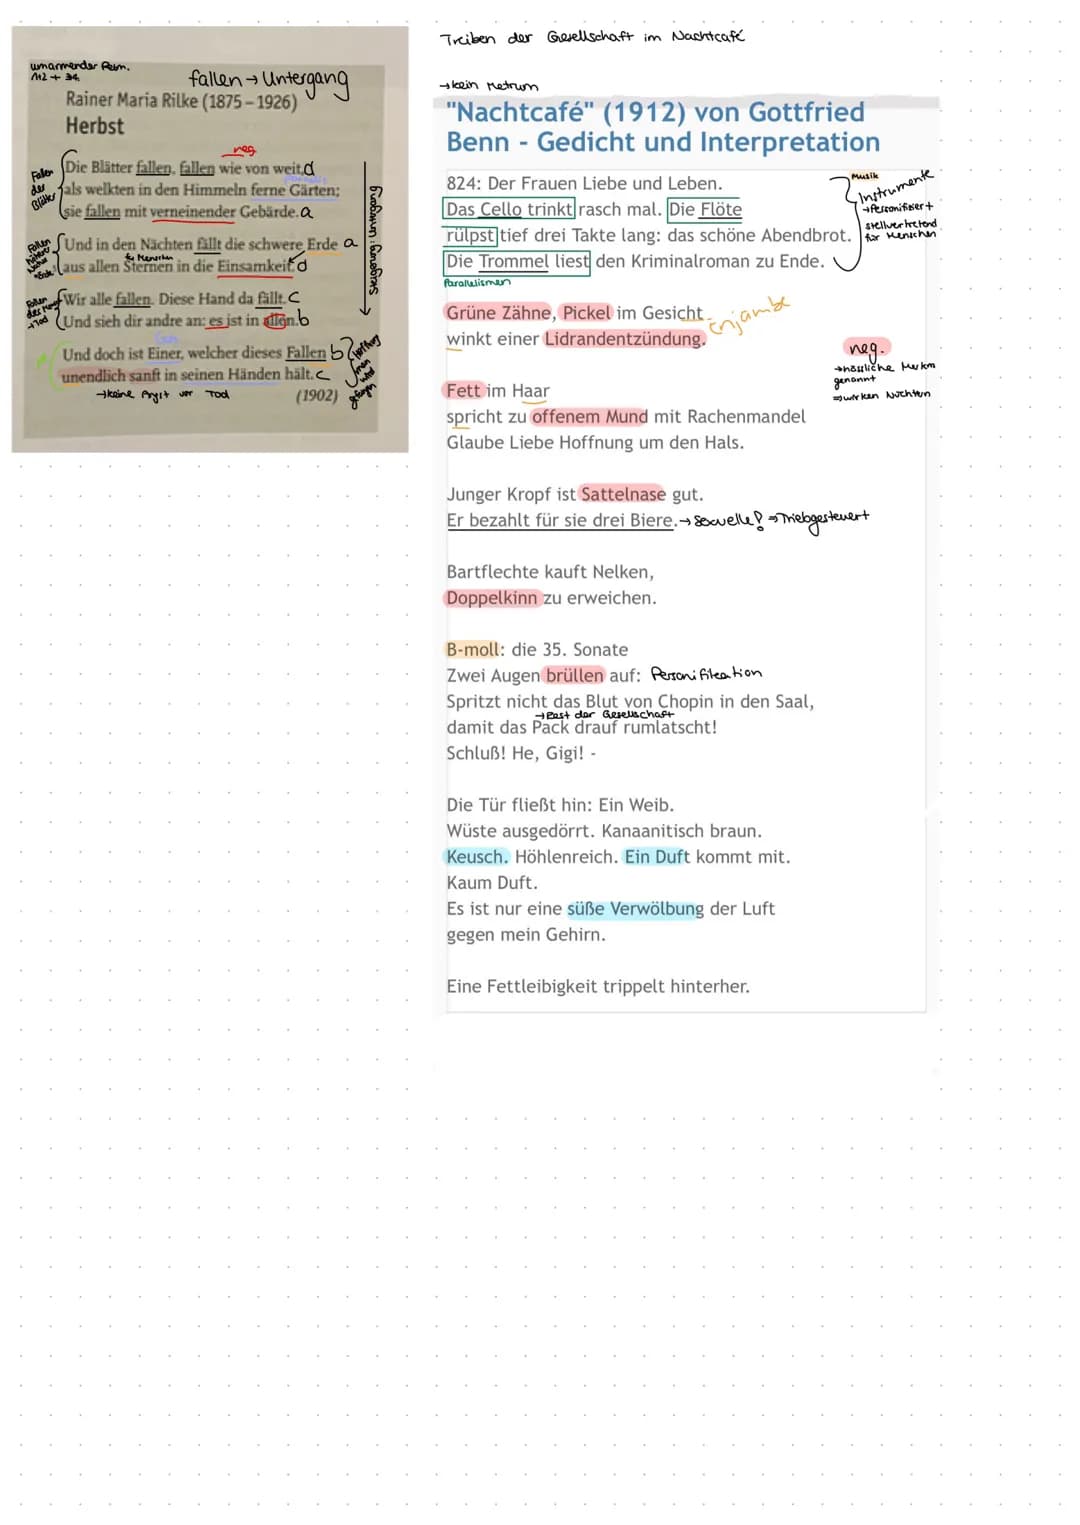 umarmender Reim.
1+2 + 34
fallen → Untergang
Rainer Maria Rilke (1875 – 1926)
Herbst
neg
Die Blätter fallen, fallen wie von weit, a
als welkten in den Himmeln ferne Gärten;
sie fallen mit verneinender Gebärde. a
Fallen der Blätter
Und in den Nächten fällt die schwere Erde a
für Menschen
aus allen Sternen in die Einsamkeit. d
Wir alle fallen. Diese Hand da fällt. c
Und sieh dir andre an: es ist in allen. b
Und doch ist Einer, welcher dieses Fallen b
unendlich sanft in seinen Händen hält. c
→ keine Angst vor Tod
(1902)
Steigerung: Untergang
Treiben der Gesellschaft im Nachtcafé
→ kein Metrum
"Nachtcafé" (1912) von Gottfried
Benn - Gedicht und Interpretation
824: Der Frauen Liebe und Leben.
Das Cello trinkt rasch mal. Die Flöte
rülpst tief drei Takte lang: das schöne Abendbrot.
Die Trommel liest den Kriminalroman zu Ende.
Parallelismen
Musik
Instrumente
→ Personifiziert
stellvertretend
für Menschen
Grüne Zähne, Pickel im Gesicht
enjambe
winkt einer Lidrandentzündung.
neg.
→ hässliche Merkm
genannt
⇒ wirken nüchtern
Fett im Haar
spricht zu offenem Mund mit Rachenmandel
Glaube Liebe Hoffnung um den Hals.
Junger Kropf ist Sattelnase gut.
Er bezahlt für sie drei Biere. → sexuelle? ⇒ Triebgesteuert
Bartflechte kauft Nelken,
Doppelkinn zu erweichen.
B-moll: die 35. Sonate
Zwei Augen brüllen auf: Personifikation
Spritzt nicht das Blut von Chopin in den Saal,
→ Rest der Gesellschaft
damit das Pack drauf rumlatscht!
Schluß! He, Gigi! -
Die Tür fließt hin: Ein Weib.
Wüste ausgedörrt. Kanaanitisch braun.
Keusch. Höhlenreich. Ein Duft kommt mit.
Kaum Duft.
Es ist nur eine süße Verwölbung der Luft
gegen mein Gehirn.
Eine Fettleibigkeit trippelt hinterher.